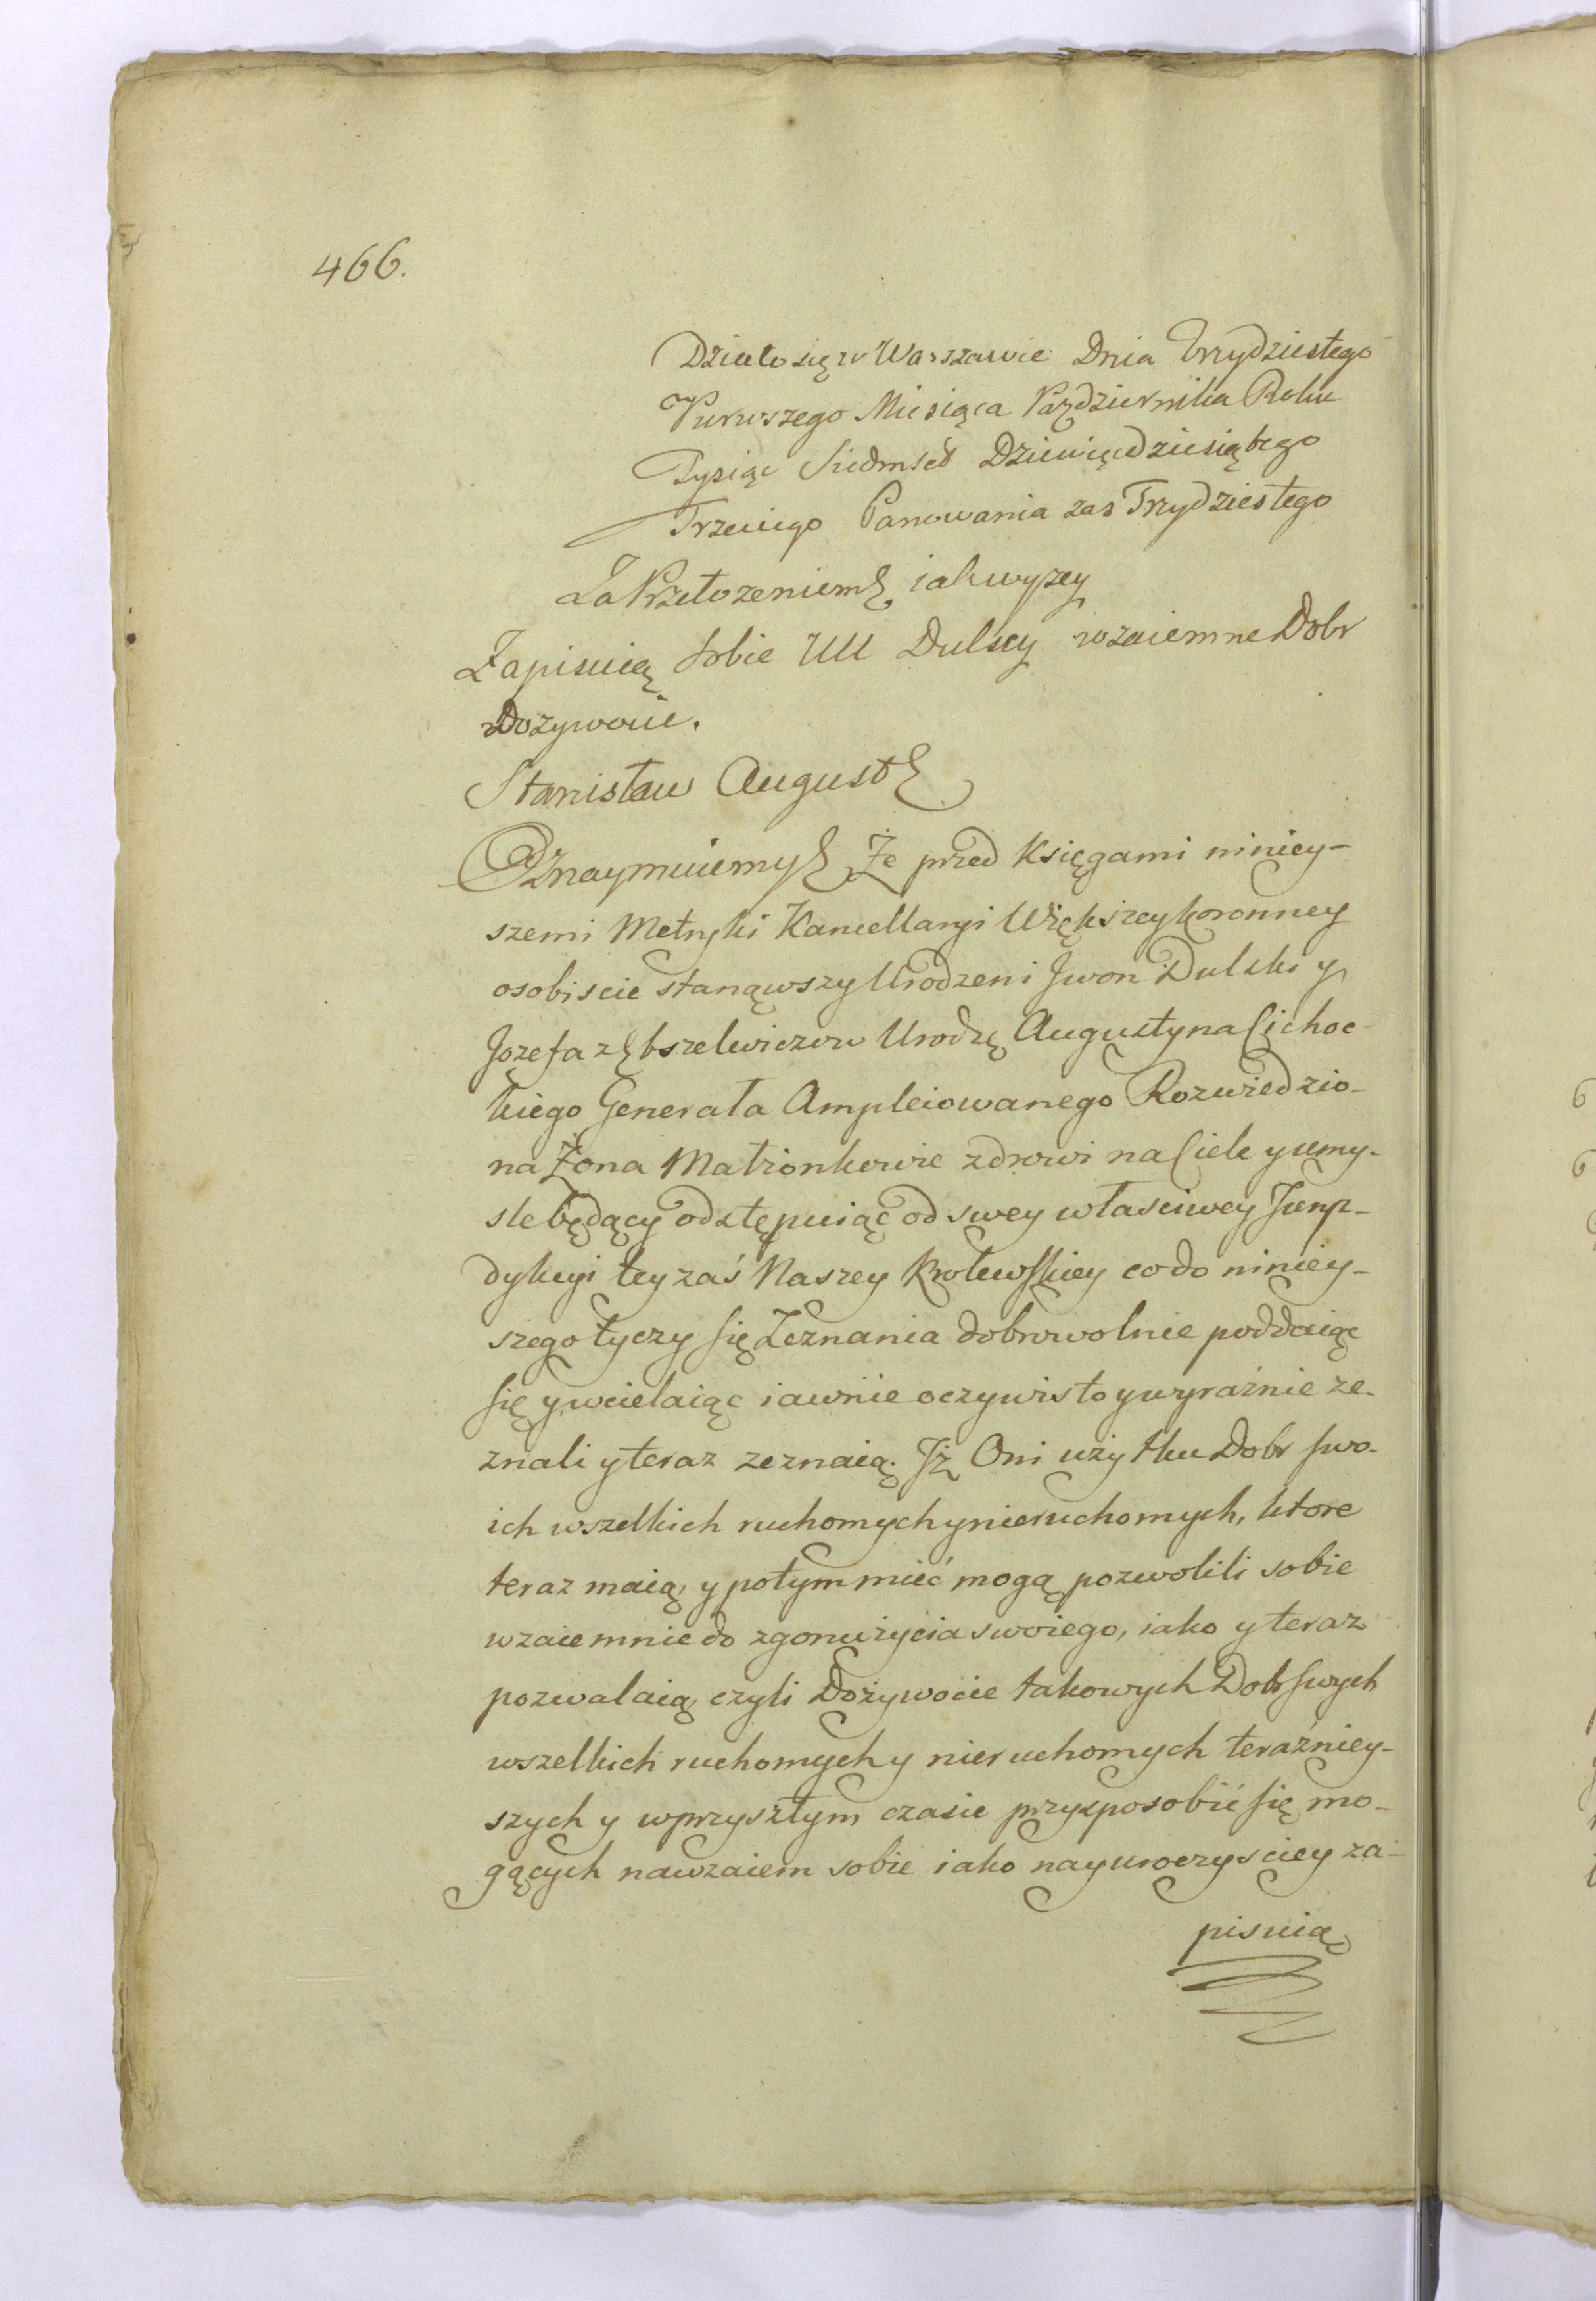 466.
Działo się w Warszawie Dnia Trzydziestego
Pierwszego Miesiąca Paździerńika Roku
Tysiąc Siedmset Dziewięćdziesiątego
Trzeciego Panowania zas Trzydziestego
Za Przełozeniem iak wyzey
Zapisuią sobie UU Dulscy wzaiemne Dobr
Dozywocie.
Stanisław August
Oznaymuiemy Że przed Księgami niniey-
szemi Metryki Kancellaryi Większey koronney
osobiscie stanąwszy Urodzeni Jwon Dulski y
Jozefa z Urodzę Augustyna Cichoc-
kiego Generała Ampleiowanego Rozwiedzio-
na Żona Małżonkowie zdrowi na Ciele y umy-
sle będący odstępuiąc od swey własciwey Juryz-
dykcyi tey zaś Naszey Krolewskiey co do niniey-
szego tyczy się Zeznania dobrowolnie poddaiąc
się y wcielaiąc iawnie oczywisto y wyraźnie ze-
znali y teraz zeznaią. Jż Oni użytku Dobr swo-
ich wszelkich ruchomych y nieruchomych, ktore
teraz maią, y potym mieć mogą pozwolili sobie
wzaiemnie do zgonu życia swoiego, iako y teraz
pozwalaią czyli Dożywocie takowych Dobr swych
wszelkich ruchomych y nieruchomych teraźniey-
szych y w przyszłym czasie przysposobić się mo-
gących nawzaiem sobie iako nayuroczysciey za-
pisuią